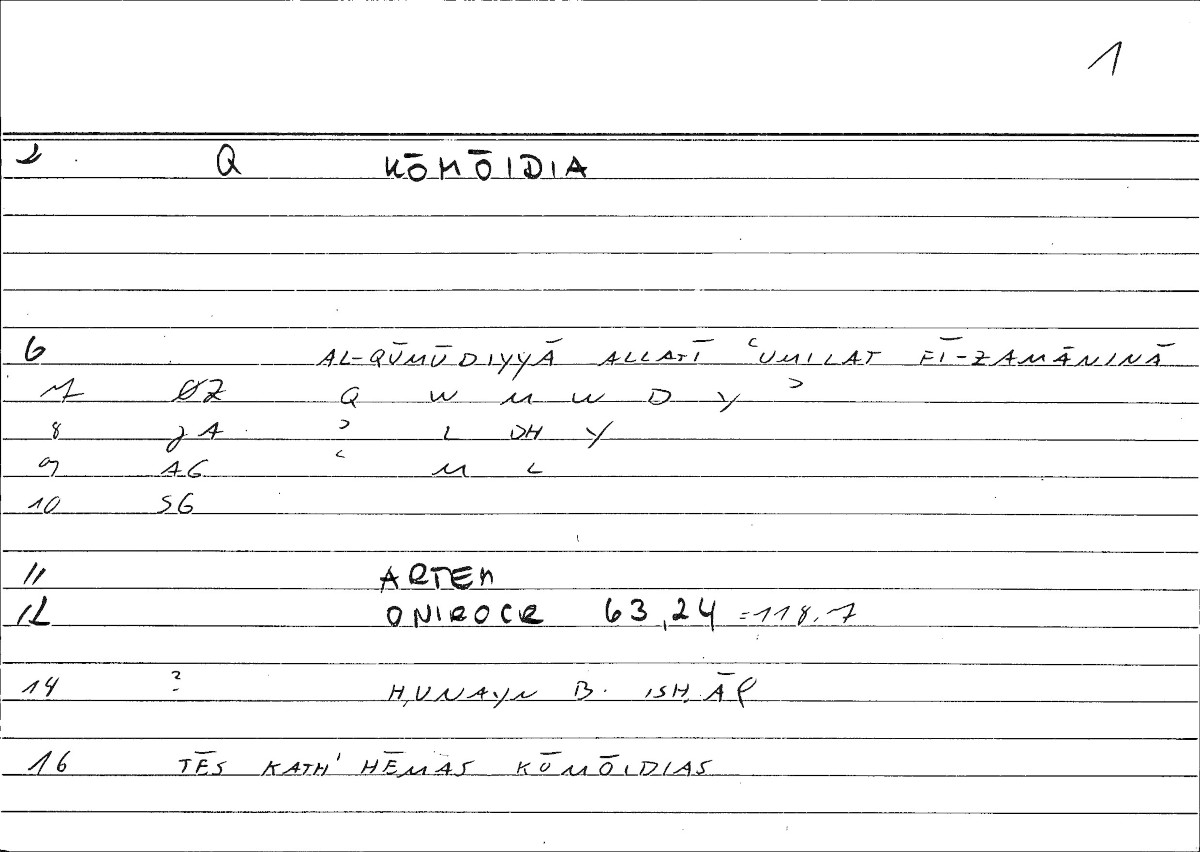 1
2 Q KŌMŌIDIA
6 AL-QŪMŪDIYYĀ ALLATĪ ʿUMILAT FĪ-ZAMĀNINĀ
7 ØZ Q W M W D Y ʾ
8 JA ʾ L DH Y
9 AG ʿ M L
10 SG
11 ARTEM
12 ONIROCR 63,24 =118,7
14 ? H,UNAYN B. ISH,ĀQ
16 TĒS KATH' HĒMAS KŌMŌIDIAS